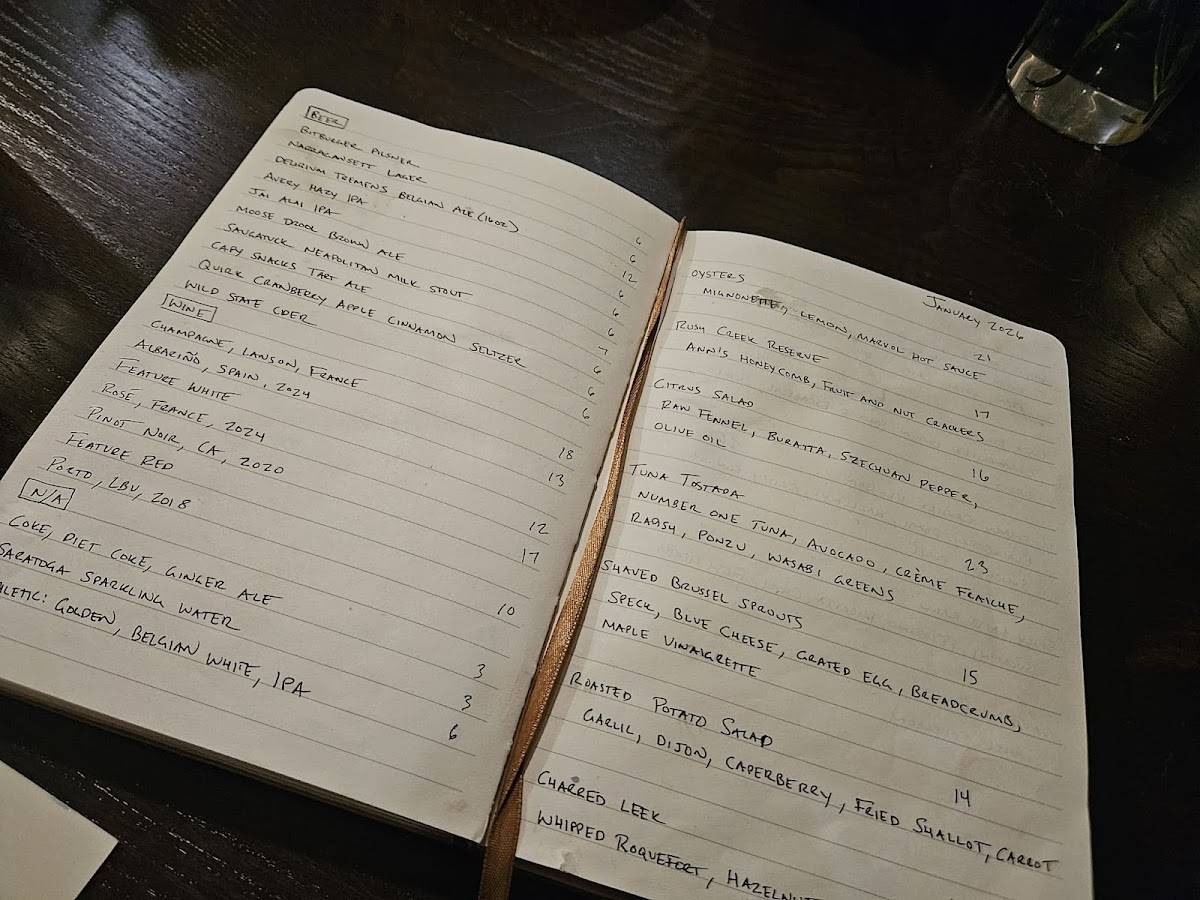 BEER
BITBURGER PILSNER 6
NARRAGANSETT LAGER 6
DELIRIUM TREMENS BELGIAN ALE (16OZ) 12
AVERY HAZY IPA 6
JAI ALAI IPA 6
MOOSE DROOL BROWN ALE 6
SAUGATUCK NEAPOLITAN MILK STOUT 7
CAPY SNACKS TART ALE 6
QUIRK CRANBERRY APPLE CINNAMON SELTZER 6
WILD STATE CIDER 6
WINE
CHAMPAGNE, LANSON, FRANCE 18
ALBARIÑO, SPAIN, 2024 13
FEATURE WHITE
ROSÉ, FRANCE, 2024 12
PINOT NOIR, CA, 2020 17
FEATURE RED
PORTO, LBV, 2018 10
N/A
COKE, DIET COKE, GINGER ALE 3
SARATOGA SPARKLING WATER 3
HLETIC: GOLDEN, BELGIAN WHITE, IPA 6
JANUARY 2026
OYSTERS 21
MIGNONETTE, LEMON, MARVOL HOT SAUCE
RUSH CREEK RESERVE 17
ANN'S HONEYCOMB, FRUIT AND NUT CRACKERS
CITRUS SALAD 16
RAW FENNEL, BURATTA, SZECHUAN PEPPER,
OLIVE OIL
TUNA TOSTADA 23
NUMBER ONE TUNA, AVOCADO, CRÈME FRAICHE,
RADISH, PONZU, WASABI GREENS
SHAVED BRUSSEL SPROUTS 15
SPECK, BLUE CHEESE, GRATED EGG, BREADCRUMB,
MAPLE VINAIGRETTE
ROASTED POTATO SALAD 14
GARLIC, DIJON, CAPERBERRY, FRIED SHALLOT, CARROT
CHARRED LEEK
WHIPPED ROQUEFORT, HAZELNUT